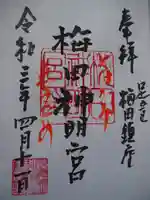 奉拝
足立区
梅田鎮座
梅田神明宮
令和三年四月十一日